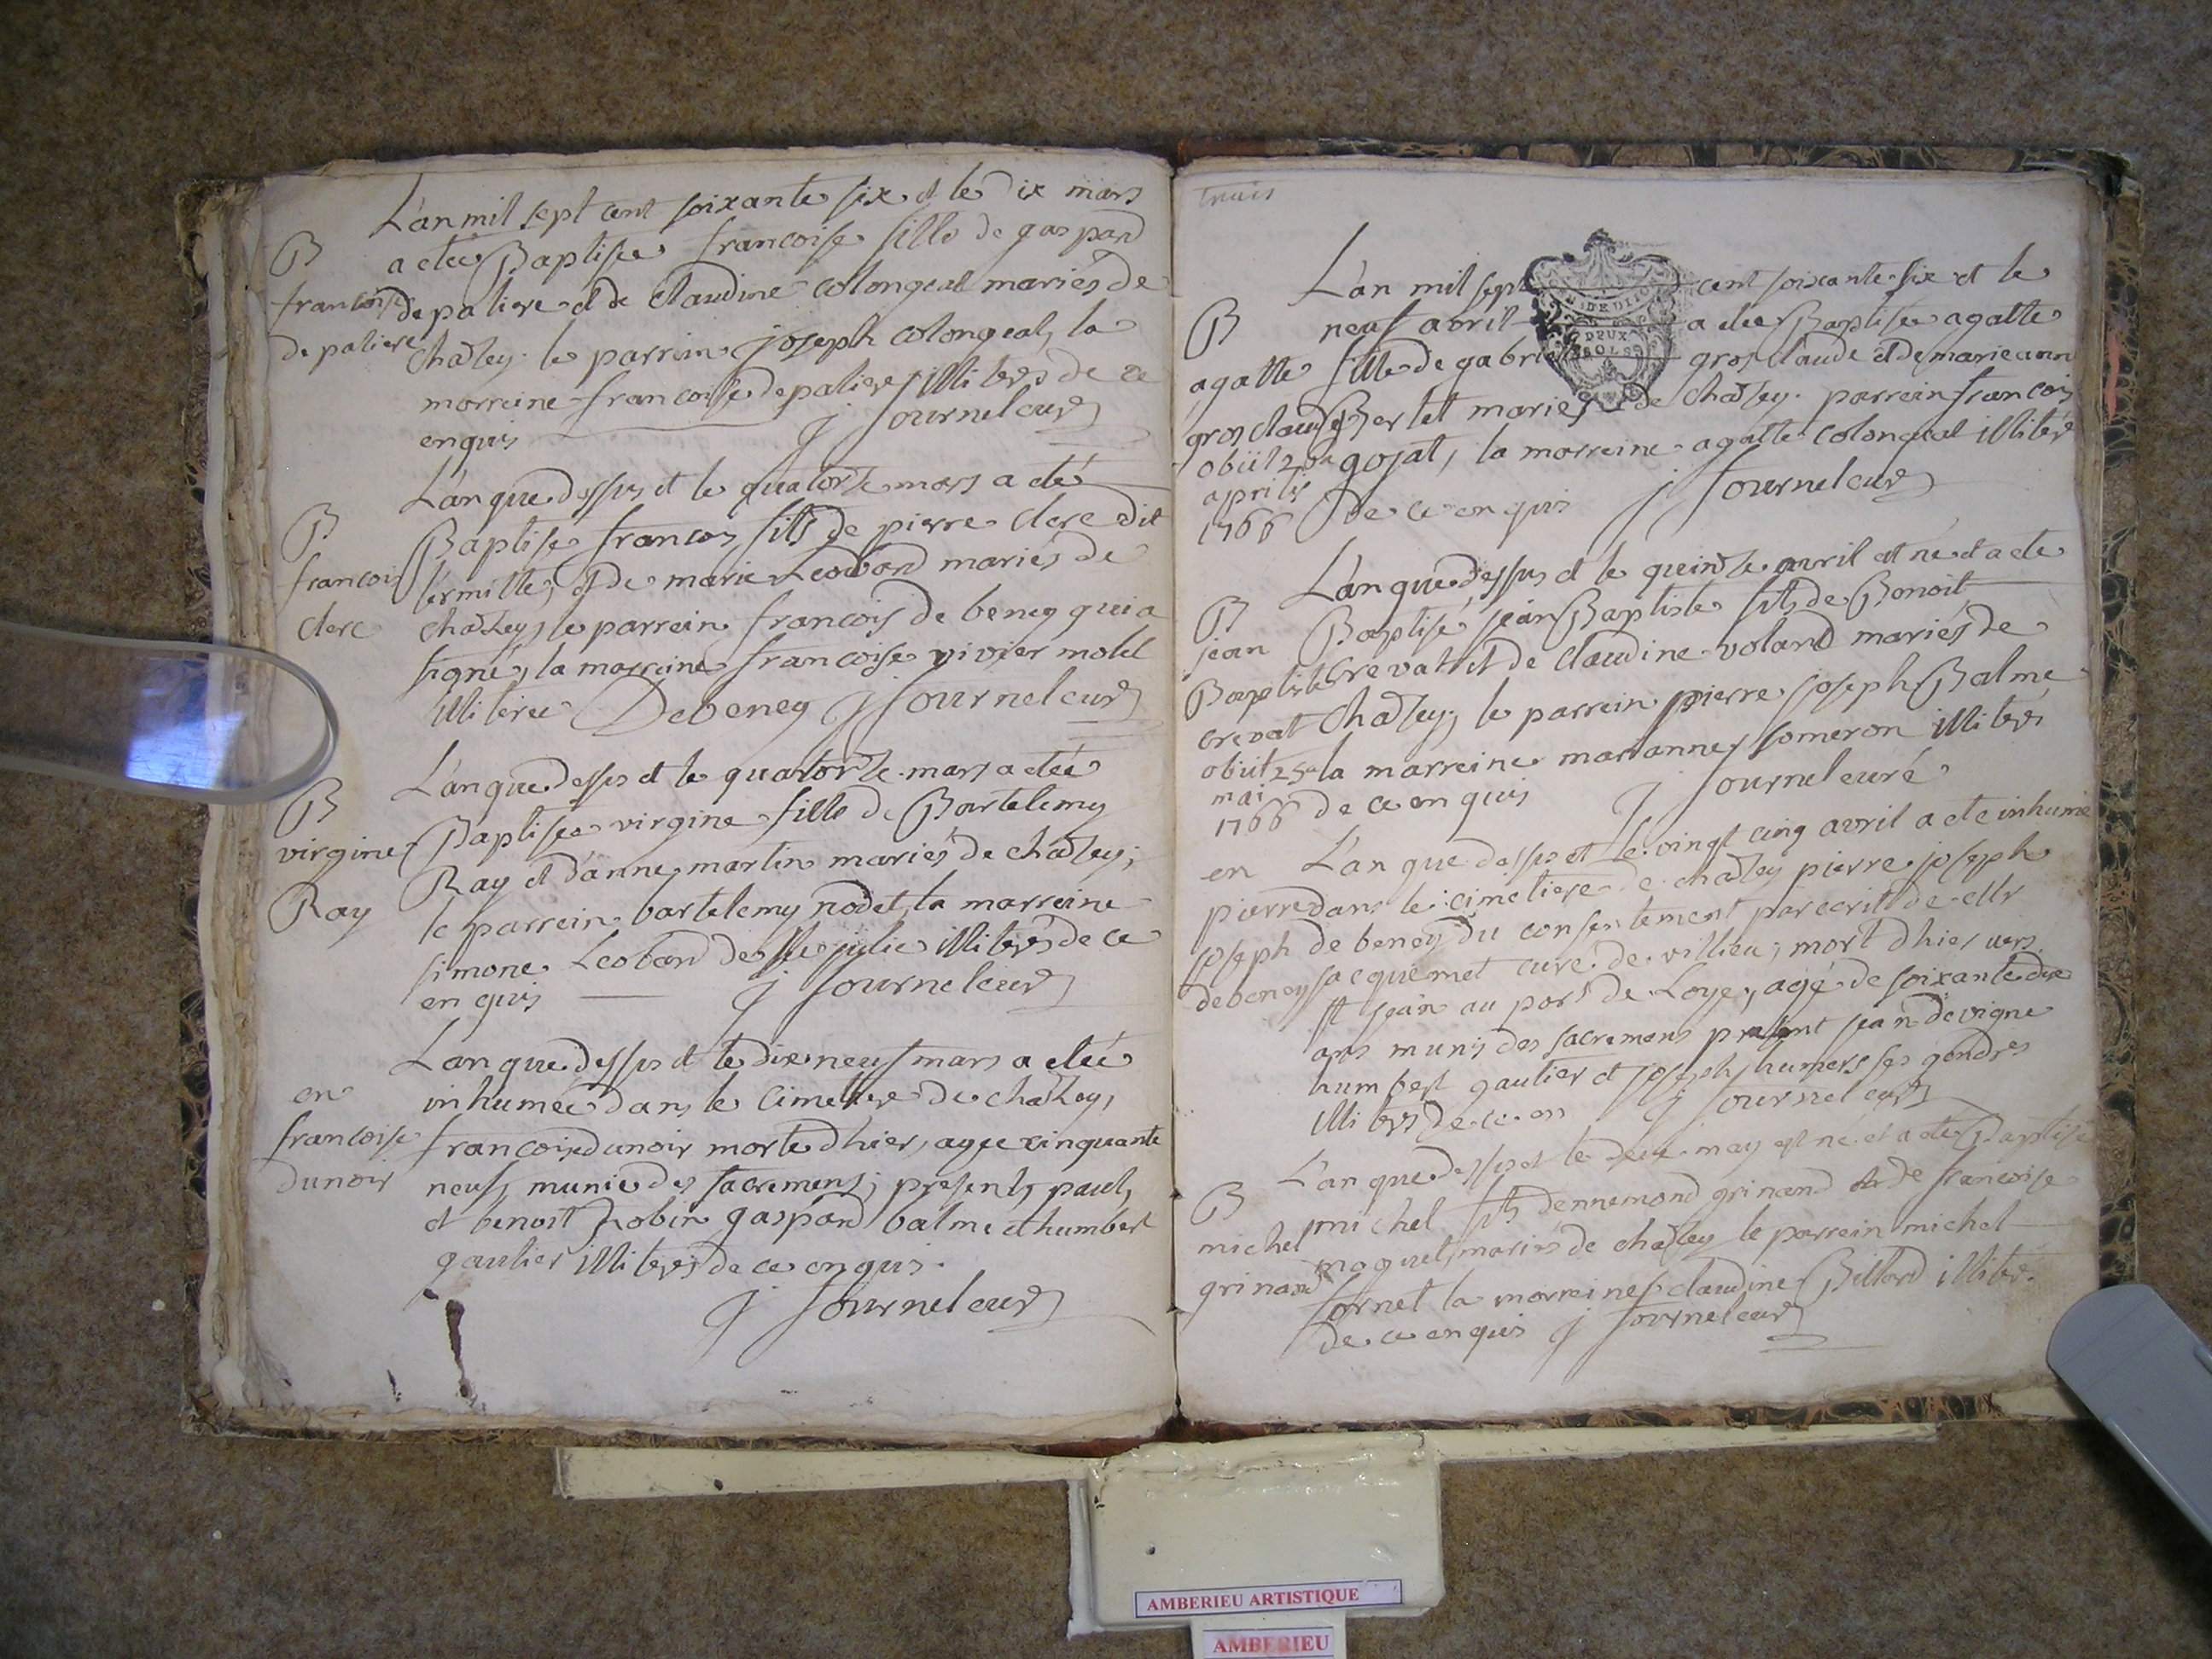 L'an mil sept cent soixante six et le dix mars
B a etée Baptisée francoise fille de gaspard
francoise depaliere et de claudine colongeal mariés de
depaliere chaZey. le parrein joseph colongeal, la
marreine francoise depaliere illiterés de ce
enquis J fournel curé
L'an que dessus et le quatorze mars a eté
B Baptise francois fils de pierre clerc dit
francois l'ermitte, et de marie Leobard mariés de
clerc chaZey, le parrein francois de beney qui a
signé, la marreine francoise vivier molel
illiterée Debeney J fournel curé
L'an que dessus et le quatorze mars a etée
B Baptisée virgine fille de Bartelemy
virgine Ray et d'anne martin mariés de chaZey;
Ray le parrein bartelemy nodet, la marreine
simone Leobard de Ste julie illiterés de ce
en quis J fournel curé
L'an que dessus et le dix neuf mars a etée
en inhumée dans le cimetiere de chaZey,
francoise francoise dunoir morte d'hier, agée cinquante
dunoir neuf, munie des sacremens; presents paul,
et benoit Robin gaspard balme et humbert
gautier illiterés de ce enquis.
J fournel curé
trois
L'an mil sept cent soixante six et le
B neuf avril a etée Baptisée agatte
DEUX SOLS
agatte fille de gabriel grosclaude et de marie ann
grosclaude Bertet mariés de chaZey. parrein francois
obiit 25a gojat, la marreine agatte colongeal illiterés
aprilis
1766 de ce enquis J fournel curé
L'an que dessus et le quinze avril est né et a ete
B Baptisé jean Baptiste fils de Benoit
jean
Baptiste crevat et de claudine voland mariés de
crevat chaZey, le parrein pierre joseph Balme
obiit 25a la marreine marianne someron illiterés
mai
1766 de ce enquis J fournel curé
en L'an que dessus et le vingt cinq avril a eté inhumé
pierre dans le cimetiere de chaZey pierre joseph
joseph de beney du consentement par ecrit de Mr
debeney jacquemet curé de villieu, mort d'hier vers
st jean au port de Loye, agé de soixante dix
ans munis des sacremens present jean devigne
humbert gautier et joseph humers ses gendres
illiterés de ce en J fournel curé
L'an que dessus et le deux may est né et a eté Baptisé
B michel fils dennemond grinand et de francoise
michel moquet, mariés de chaZey le parrein michel
grinand fornet la marreine claudine Billard illiterés
de ce enquis J fournel curé
AMBERIEU ARTISTIQUE
AMBERIEU